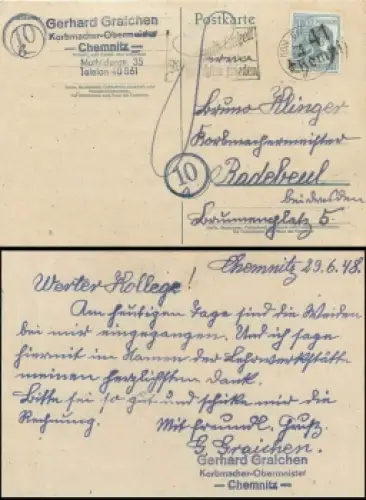 Gerhard Graichen
Korbmacher-Obermeister
— Chemnitz —
Mathildenstr. 35
Telefon 40861
Postkarte
10
b
41
Chemnitz
Firma
Bruno Klinger
Korbmachermeister
10
a
Radebeul
bei Dresden
Brunnenplatz 5
Chemnitz 29.6.48.
Werter Kollege!
Am heutigen Tage sind die Weiden
bei mir eingegangen. Und ich sage
hiermit im Namen der Lehrwerkstätte
meinen herzlichsten Dank.
Bitte sei so gut und schicke mir die
Rechnung. Mit freundl. Gruß
G. Graichen.
Gerhard Graichen
Korbmacher-Obermeister
— Chemnitz —